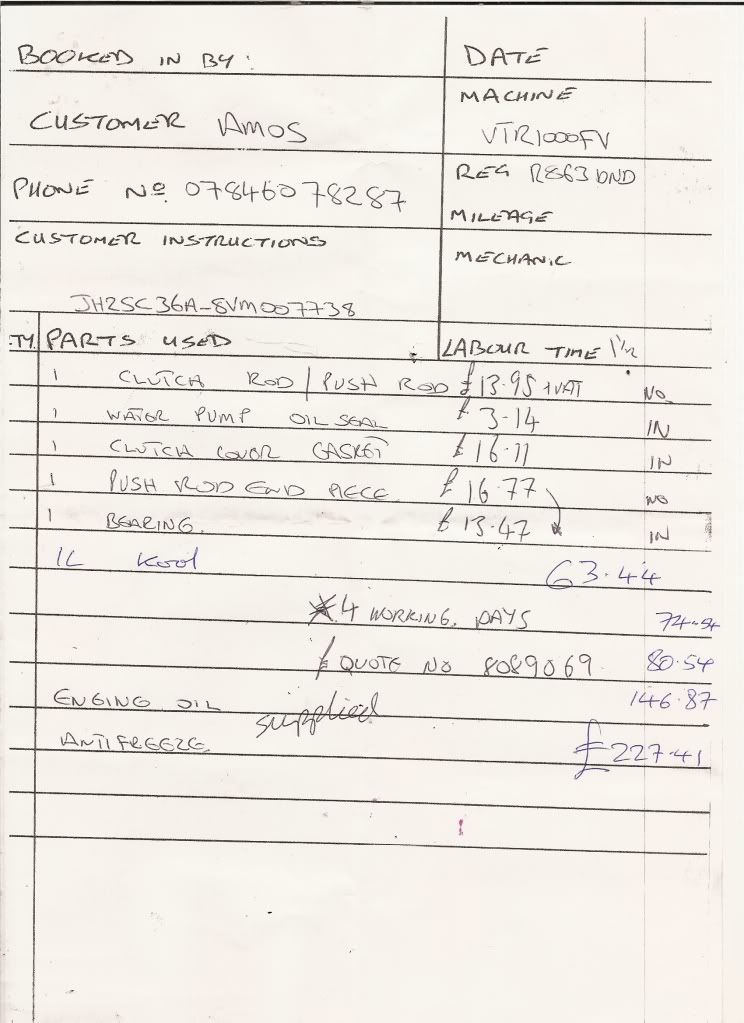 BOOKED IN BY:
DATE
MACHINE
CUSTOMER AMOS
VTR1000FV
REG R863 DND
PHONE No 07846078287
MILEAGE
CUSTOMER INSTRUCTIONS
MECHANIC
JH2SC36A-8VM007738
TY. PARTS USED LABOUR TIME 1½
1 CLUTCH ROD / PUSH ROD £13.95 +VAT NO
1 WATER PUMP OIL SEAL £ 3.14 IN
1 CLUTCH COVOR GASKET £16.11 IN
1 PUSH ROD END PIECE £16.77 NO
1 BEARING. £13.47 IN
1L Kool 63.44
4 WORKING DAYS 74.54
QUOTE NO 8089069. 80.54
ENGING OIL 146.87
supplied
ANTIFREEZE £227.41